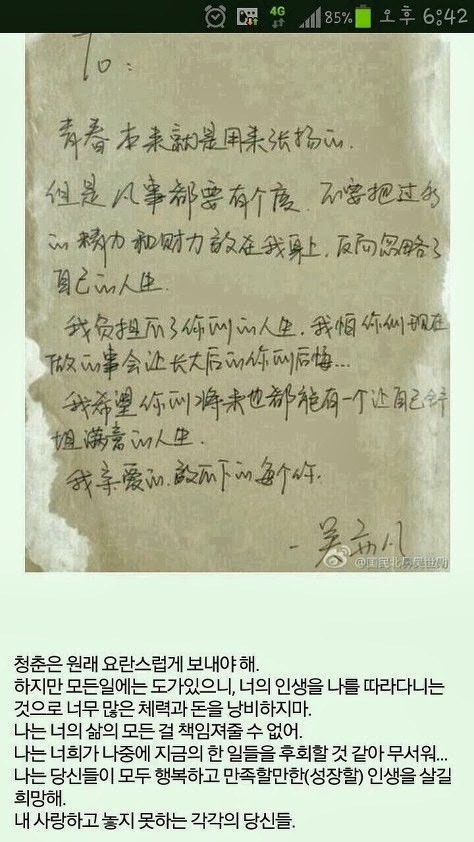 4G 85% 오후 6:42
To:
青春本来就是用来张扬的.
但是凡事都要有个度. 不要把过多
的精力和财力放在我身上, 反而忽略了
自己的人生.
我负担不了你们的人生. 我怕你们现在
做的事会让长大后的你们后悔...
我希望你们将来也都能有一个让自己舒
坦满意的人生.
我亲爱的.放不下的每个你.
-吴亦凡
@国民北鼻吴世勋
청춘은 원래 요란스럽게 보내야 해.
하지만 모든일에는 도가있으니, 너의 인생을 나를 따라다니는
것으로 너무 많은 체력과 돈을 낭비하지마.
나는 너의 삶의 모든 걸 책임져줄 수 없어.
나는 너희가 나중에 지금의 한 일들을 후회할 것 같아 무서워...
나는 당신들이 모두 행복하고 만족할만한(성장할) 인생을 살길
희망해.
내 사랑하고 놓지 못하는 각각의 당신들.